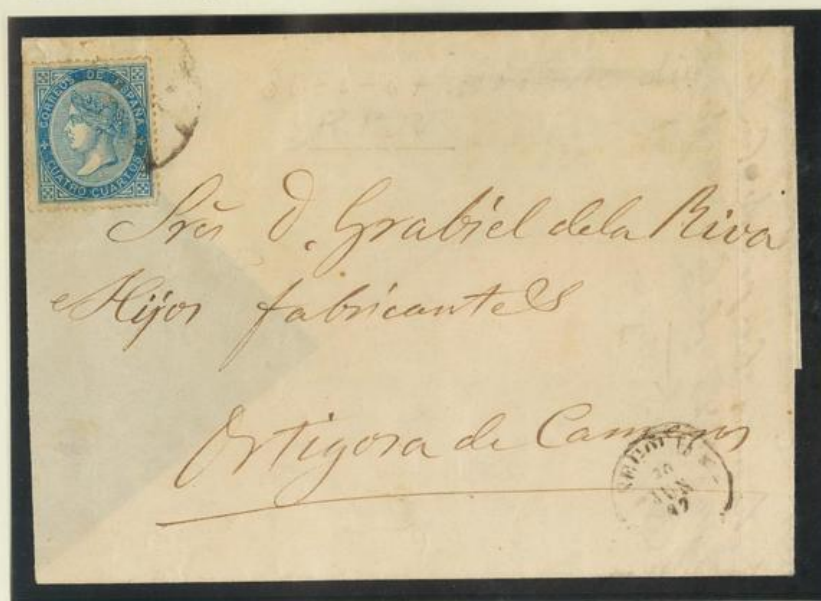 CORREOS DE ESPAÑA
CUATRO CUARTOS
Srẽs D. Grabiel de la Riva
e Hijos fabricantes
Ortigosa de Cameros
JUN
67